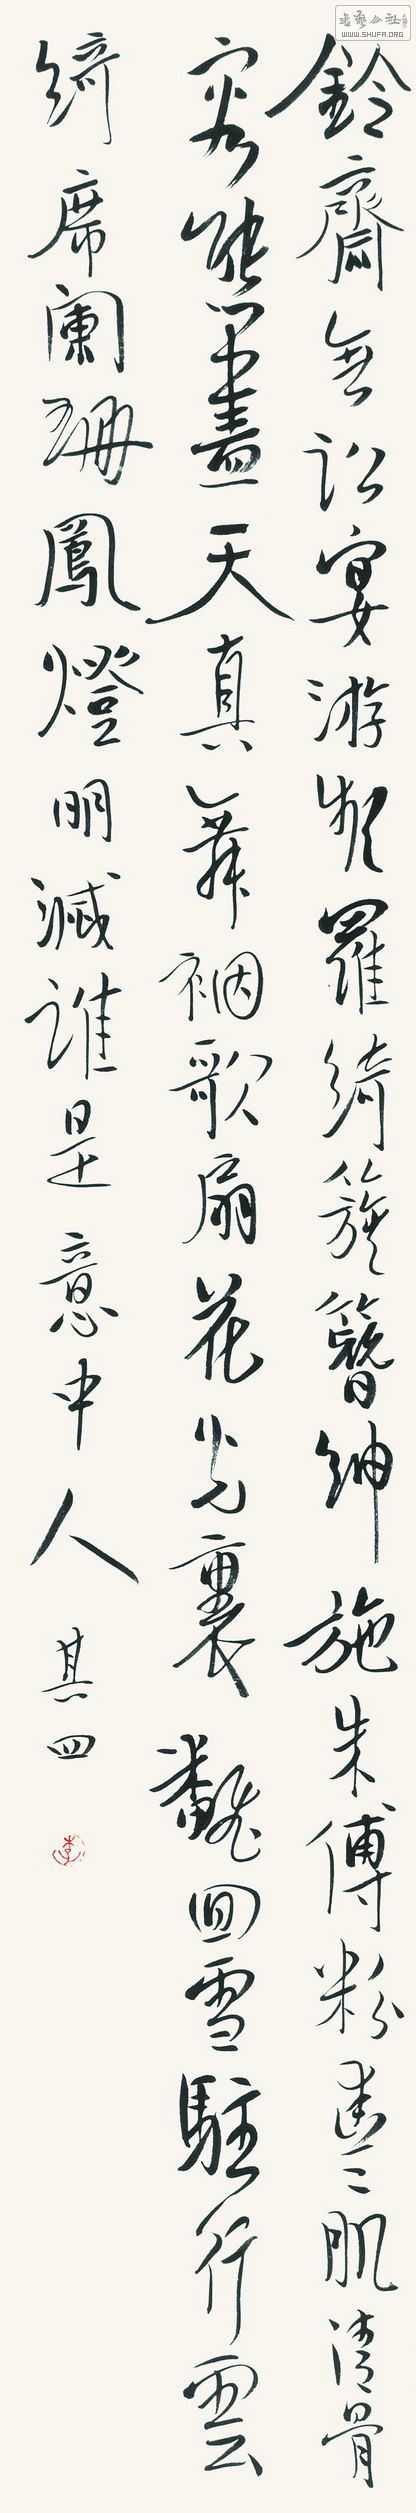 書藝公社
WWW.SHUFA.ORG
鈴齋無訟宴游頻羅綺簇簪紳施朱傅粉豐肌清骨
容態盡天真舞裀歌扇花光裏飜回雪駐行雲
綺席闌珊鳳燈明滅誰是意中人 其四
李